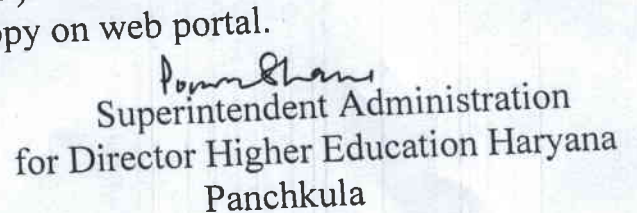 opy on web portal.
Superintendent Administration
for Director Higher Education Haryana
Panchkula